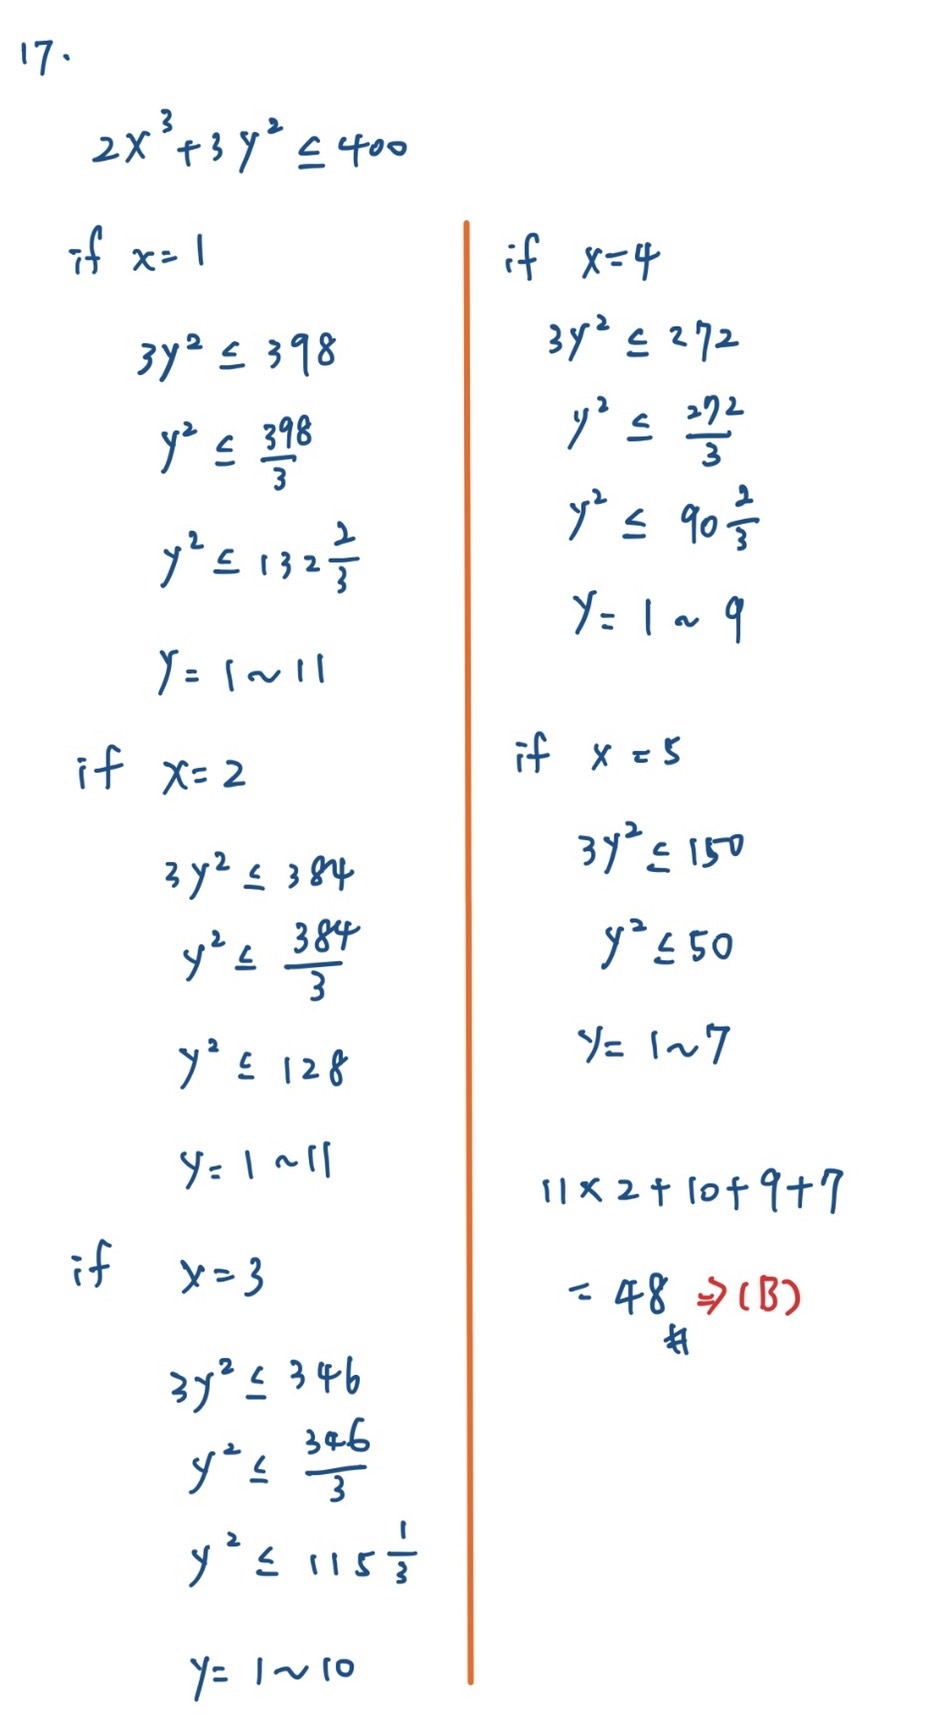 17.
2x³+3y²≤400
if x=1
3y²≤398
y²≤398/3
y²≤132 2/3
y=1~11
if x=2
3y²≤384
y²≤384/3
y²≤128
y=1~11
if x=3
3y²≤346
y²≤346/3
y²≤115 1/3
y=1~10
if x=4
3y²≤272
y²≤272/3
y²≤90 2/3
y=1~9
if x=5
3y²≤150
y²≤50
y=1~7
11×2+10+9+7
=48 ⇒(B)
#